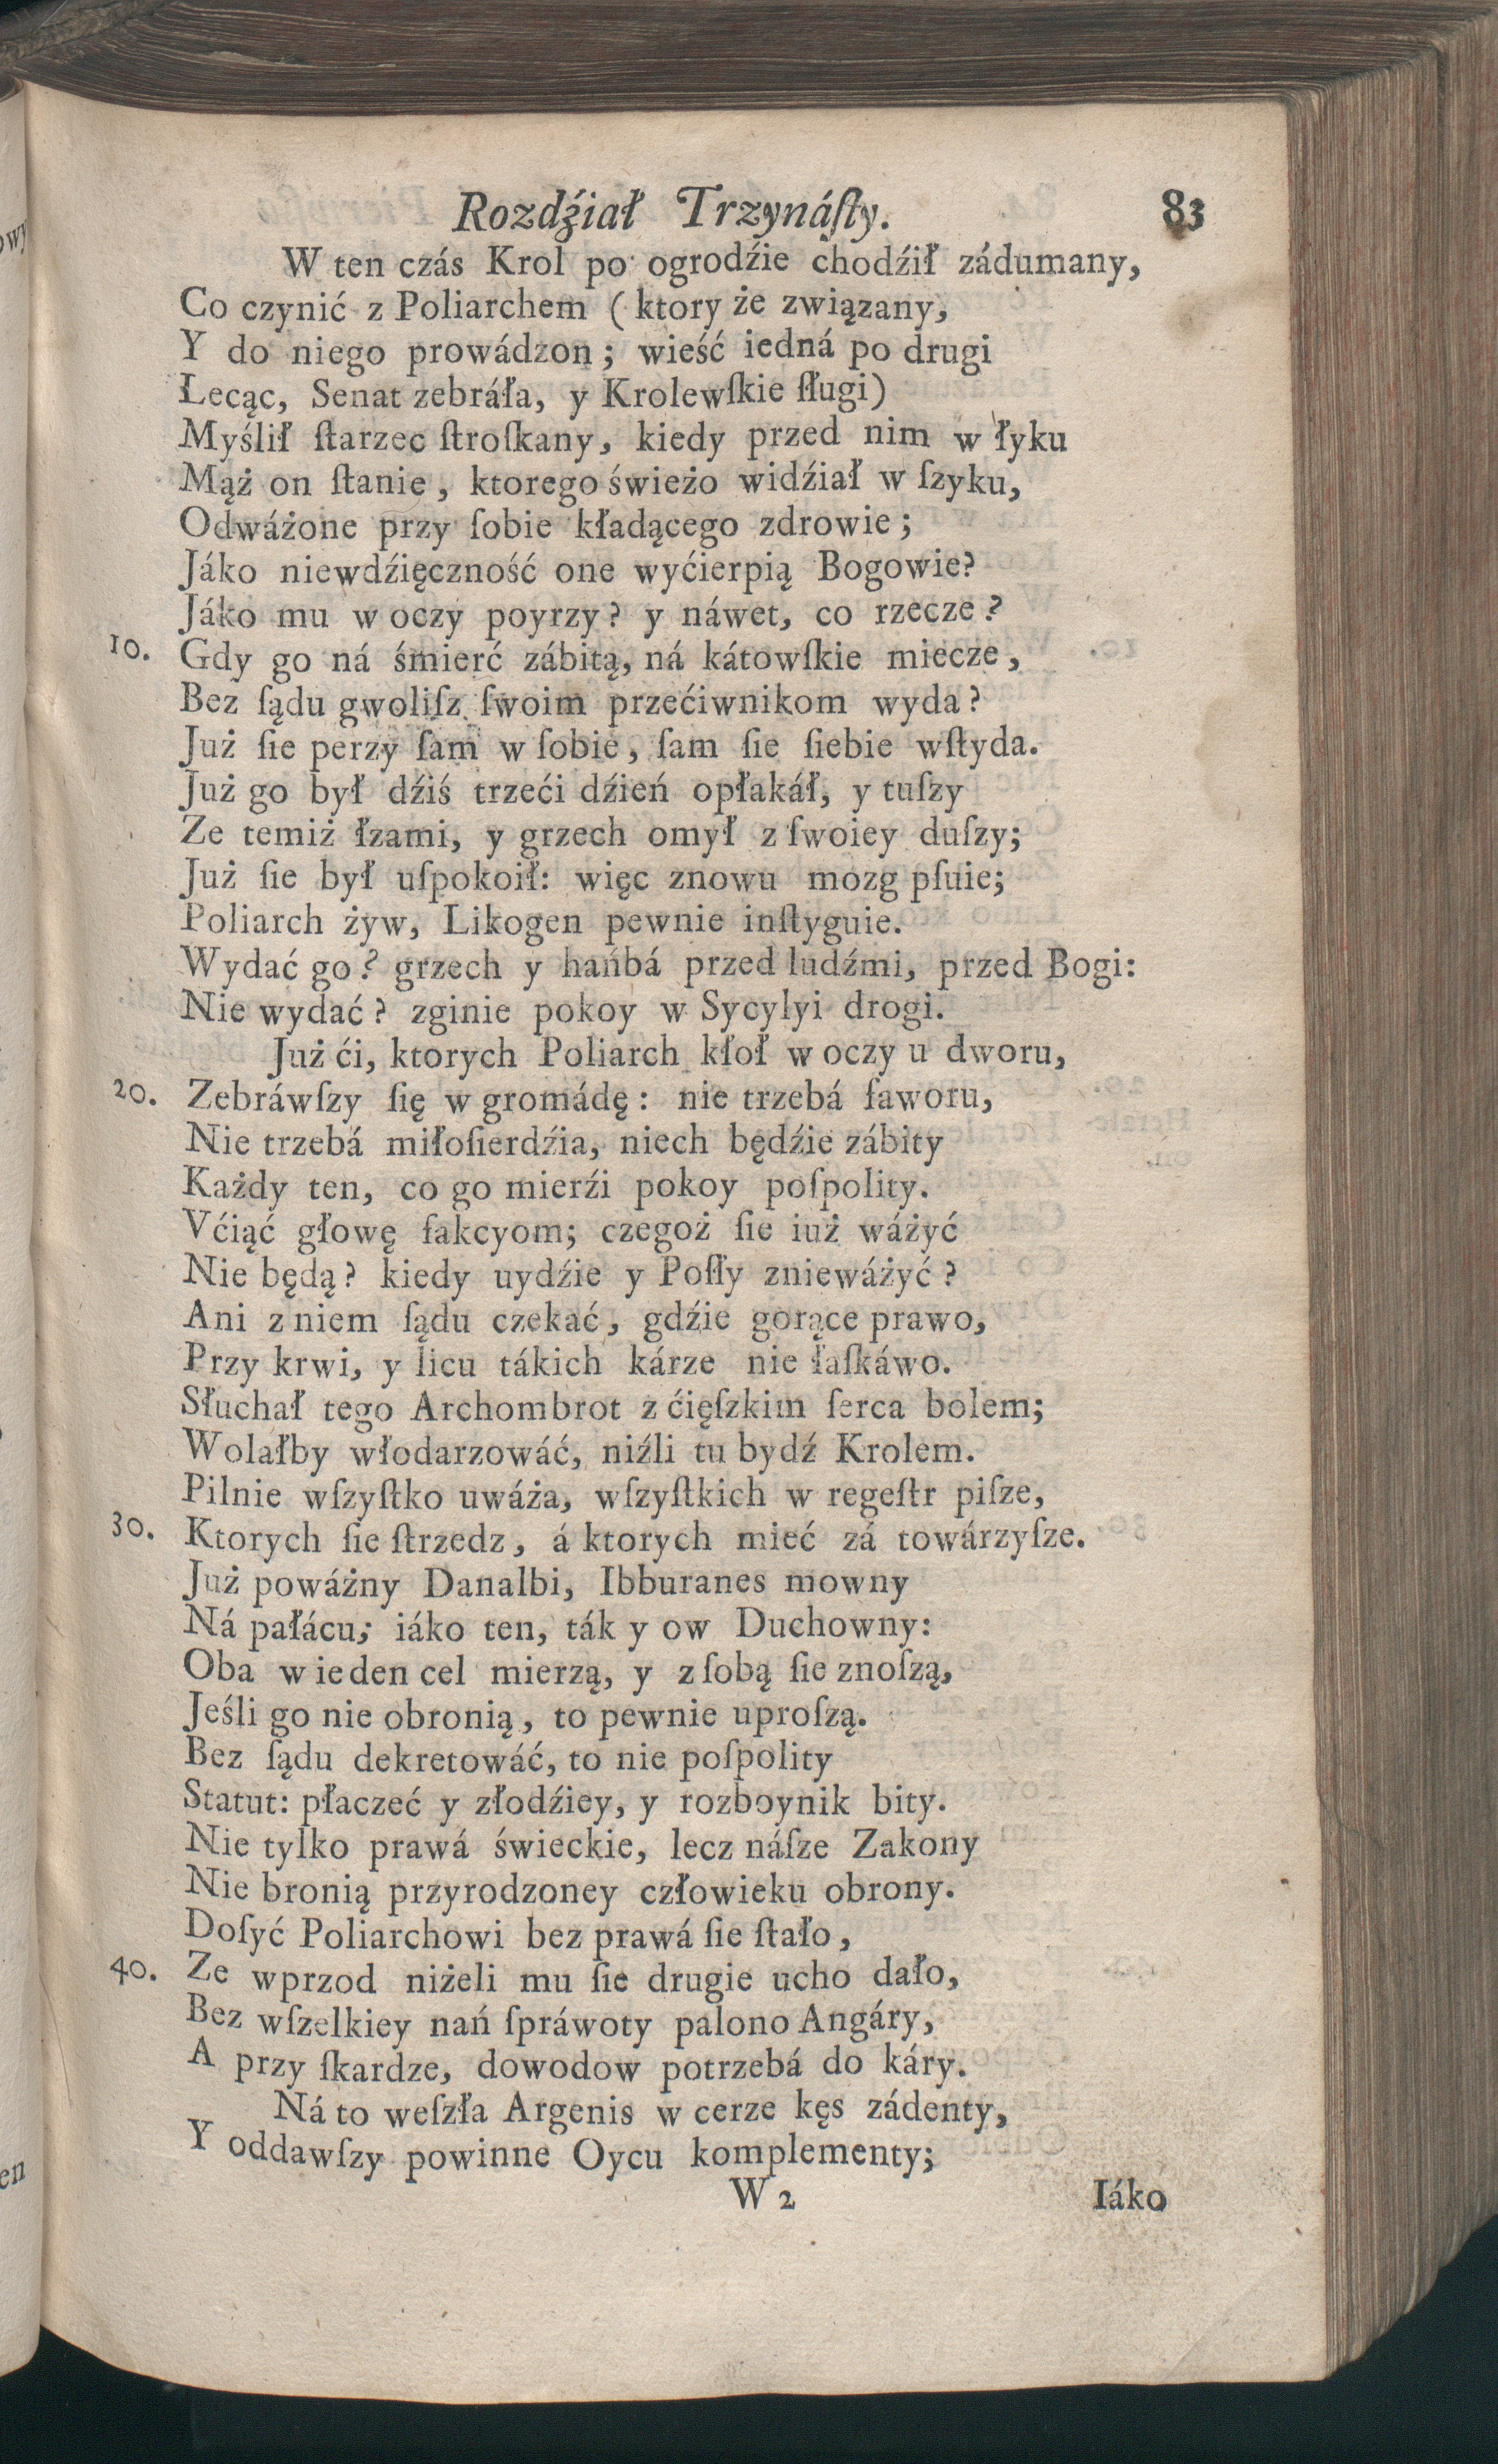 Rozdźiał Trzynáſty. 83
W ten czás Krol po ogrodźie chodźił zádumany,
Co czynić z Poliarchem ( ktory że związany,
Y do niego prowádzon; wieść iedná po drugi
Lecąc, Senat zebráła, y Krolewſkie ſługi)
Myślił ſtarzec ſtroſkany, kiedy przed nim w łyku
Mąż on ſtanie, ktorego świeżo widźiał w ſzyku,
Odwáżone przy ſobie kładącego zdrowie;
Jáko niewdźięczność one wyćierpią Bogowie?
Jáko mu w oczy poyrzy? y náwet, co rzecze?
10. Gdy go ná śmierć zábitą, ná kátowſkie miecze,
Bez ſądu gwoliſz ſwoim przećiwnikom wyda?
Już ſie perzy ſam w ſobie, ſam ſie ſiebie wſtyda.
Już go był dźiś trzeći dźień opłakáł, y tuſzy
Ze temiż łzami, y grzech omył z ſwoiey duſzy;
Już ſie był uſpokoił: więc znowu mozg pſuie;
Poliarch żyw, Likogen pewnie inſtyguie.
Wydać go? grzech y hańbá przed ludźmi, przed Bogi:
Nie wydać? zginie pokoy w Sycylyi drogi.
Już ći, ktorych Poliarch kłoł w oczy u dworu,
20. Zebráwſzy ſię w gromádę: nie trzebá faworu,
Nie trzebá miłoſierdźia, niech będźie zábity
Każdy ten, co go mierźi pokoy poſpolity.
Vćiąć głowę fakcyom; czegoż ſie iuż wáżyć
Nie będą? kiedy uydźie y Poſły zniewáżyć?
Ani z niem ſądu czekać, gdźie gorące prawo,
Przy krwi, y licu tákich kárze nie łaſkáwo.
Słuchał tego Archombrot z ćięſzkim ſerca bolem;
Wolałby włodarzowáć, niźli tu bydź Krolem.
Pilnie wſzyſtko uwáża, wſzyſtkich w regeſtr piſze,
30. Ktorych ſie ſtrzedz, á ktorych mieć zá towárzyſze.
Już powáżny Danalbi, Ibburanes mowny
Ná pałácu; iáko ten, ták y ow Duchowny:
Oba w ieden cel mierzą, y z ſobą ſie znoſzą,
Jeśli go nie obronią, to pewnie uproſzą.
Bez ſądu dekretowáć, to nie poſpolity
Statut: płaczeć y złodźiey, y rozboynik bity.
Nie tylko prawá świeckie, lecz náſze Zakony
Nie bronią przyrodzoney człowieku obrony.
Doſyć Poliarchowi bez prawá ſie ſtało,
40. Ze wprzod niżeli mu ſie drugie ucho dało,
Bez wſzelkiey nań ſpráwoty palono Angáry,
A przy ſkardze, dowodow potrzebá do káry.
Ná to weſzła Argenis w cerze kęs zádenty,
Y oddawſzy powinne Oycu komplementy;
W 2 Iáko